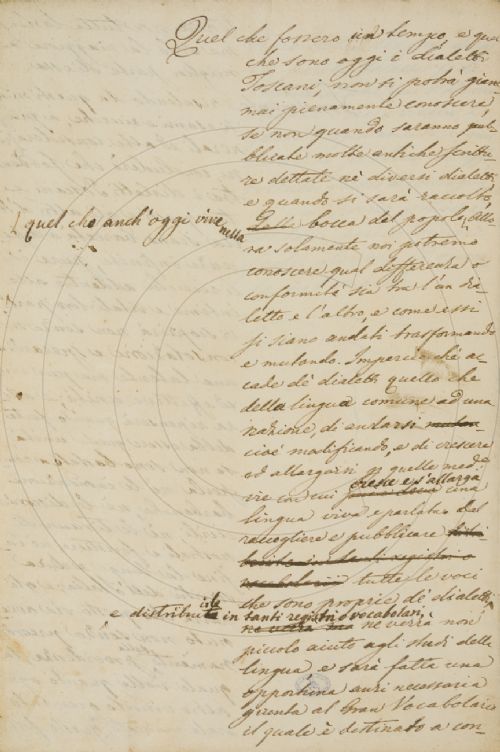 Quel che fossero un tempo, e quel
che sono oggi i dialetti
Toscani, non si potrà giam
mai pienamente conoscere,
se non quando saranno pub
blicate molte antiche scrittu
re dettate nè diversi dialetti
e quando si sarà raccolto,
quel che anch'oggi vive nella
bocca del popolo. Allo
ra solamente noi potremo
conoscere qual differenza o
conformità sia tra l'un dia
letto e l'altro, e come essi
si siano andati trasformando
e mutando. Imperciocchè ac
cade dè dialetti quello che
della lingua comune ad una
nazione, di andarsi
cioè modificando, e di crescere
ed allargarsi quelle med.e
vie in cui cresce e s'allarga una
lingua viva e parlata. Dal
raccogliere e pubblicare
tutte le voci
che sono proprie dè dialetti,
e distribuirle in tanti registri o vocabolari,
ne verrà non
piccolo aiuto agli studi della
lingua, e sarà fatta una
opportuna anzi necessaria
giunta al Gran Vocabolario
il quale è destinato a con-